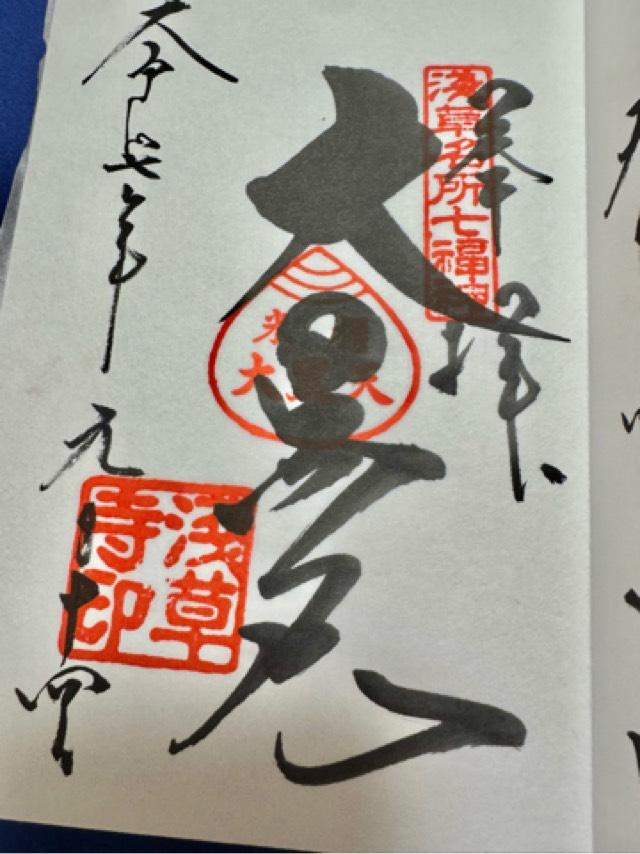 奉拝
浅草名所七福神
大黒天
大黒天
令和七年元月十四日
浅草
寺印